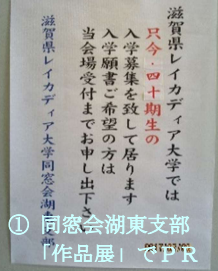 滋賀県レイカディア大学では
只今・四十期生の
入学募集を致して居ります
入学願書ご希望の方は
当会場受付までお申し出下さい
滋賀県レイカディア大学同窓会湖東支部
① 同窓会湖東支部
「作品展」でPR